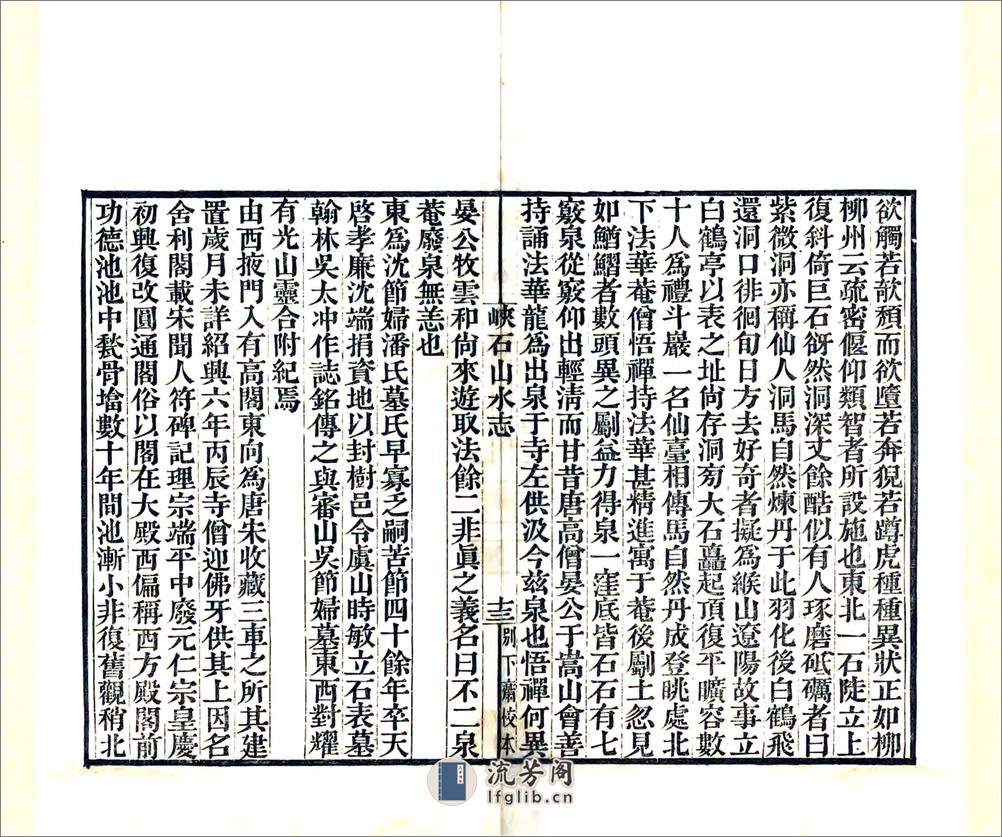 欲觸若欹頽而欲墮若奔猊若蹲虎種種異狀正如柳
柳州云疏密偃仰類智者所設施也東北一石陡立上
復斜倚巨石谺然洞深丈餘酷似有人琢磨砥礪者曰
紫微洞亦稱仙人洞馬自然煉丹于此羽化後白鶴飛
還洞口徘徊旬日方去好奇者擬為緱山遼陽故事立
白鶴亭以表之址尚存洞旁大石矗起頂復平曠容數
十人為禮斗巖一名仙臺相傳馬自然丹成登眺處北
下法華菴僧悟禪持法華甚精進寓于菴後劚土忽見
如鰌鰼者數頭異之劚益力得泉一窪底皆石石有七
竅泉從竅仰出輕清而甘昔唐高僧晏公于嵩山會善
持誦法華龍為出泉于寺左供汲今茲泉也悟禪何異
峽石山水志
十三
別下齋校本
晏公牧雲和尚來遊取法餘二非眞之義名曰不二泉
菴廢泉無恙也
東為沈節婦潘氏墓氏早寡之嗣苦節四十餘年卒天
啓孝廉沈端捐資地以封樹邑令虞山時敏立石表墓
翰林吳太冲作誌銘傳之與審山吳節婦墓東西對耀
有光山靈合附紀焉
由西掖門入有高閣東向為唐朱收藏三車之所其建
置歲月未詳紹興六年丙辰寺僧迎佛牙供其上因名
舍利閣載宋聞人符碑記理宗端平中廢元仁宗皇慶
初興復改圓通閣俗以閣在大殿西偏稱西方殿閣前
功德池池中甃骨墖數十年間池漸小非復舊觀稍北
流芳阁
lfglib.cn